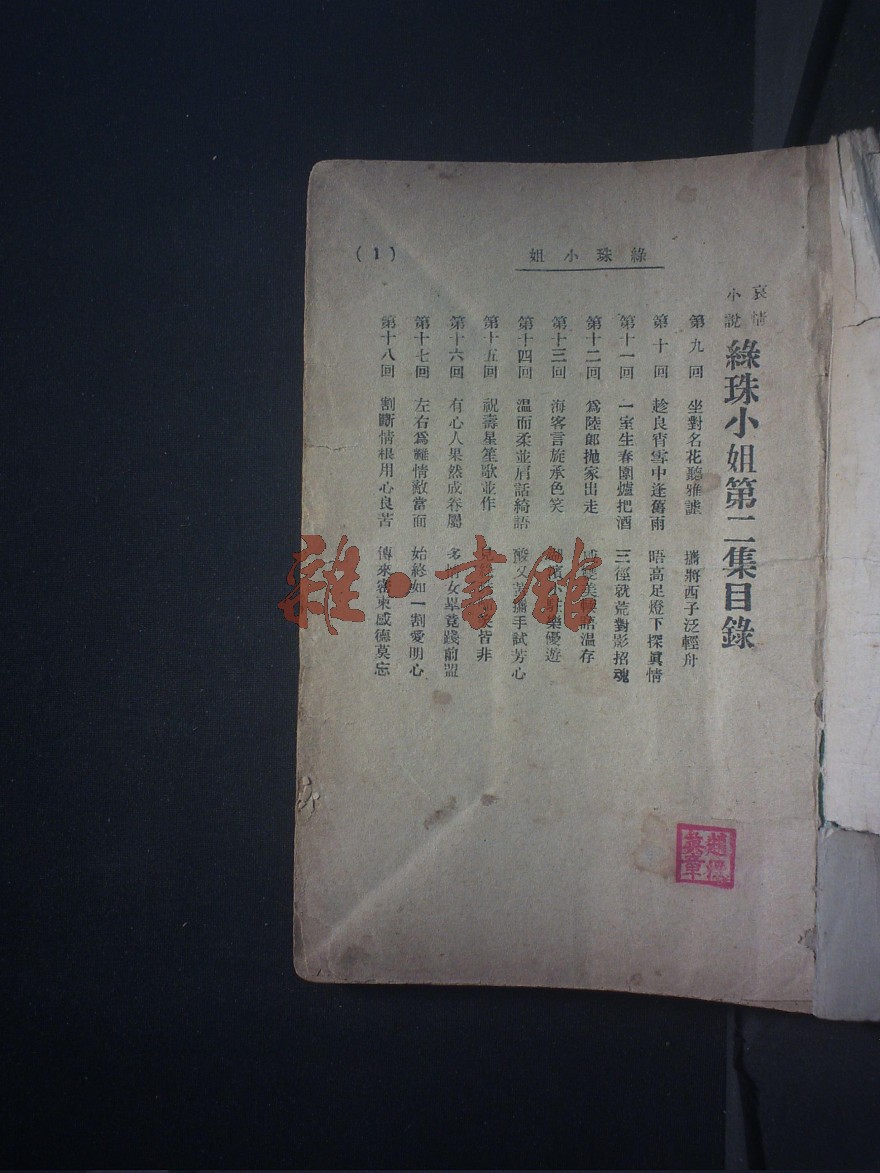 綠珠小姐
(1)
哀情
小說
綠珠小姐第二集目錄
第九回 坐對名花聽雅謔 攜將西子泛輕舟
第十回 趁良宵雪中逢舊雨 晤高足燈下探眞情
第十一回 一室生春圍爐把酒 三徑就荒對影招魂
第十二回 爲陸郎拋家出走 美 語溫存
第十三回 海客言旋承色笑 樂優遊
第十四回 溫而柔並肩話綺語 酸又苦攜手試芳心
第十五回 祝壽星笙歌並作 皆非
第十六回 有心人果然成眷屬 多情女畢竟踐前盟
第十七回 左右爲難情敵當面 始終如一割愛明心
第十八回 割斷情根用心良苦 傳來密柬感德莫忘
雜·書館